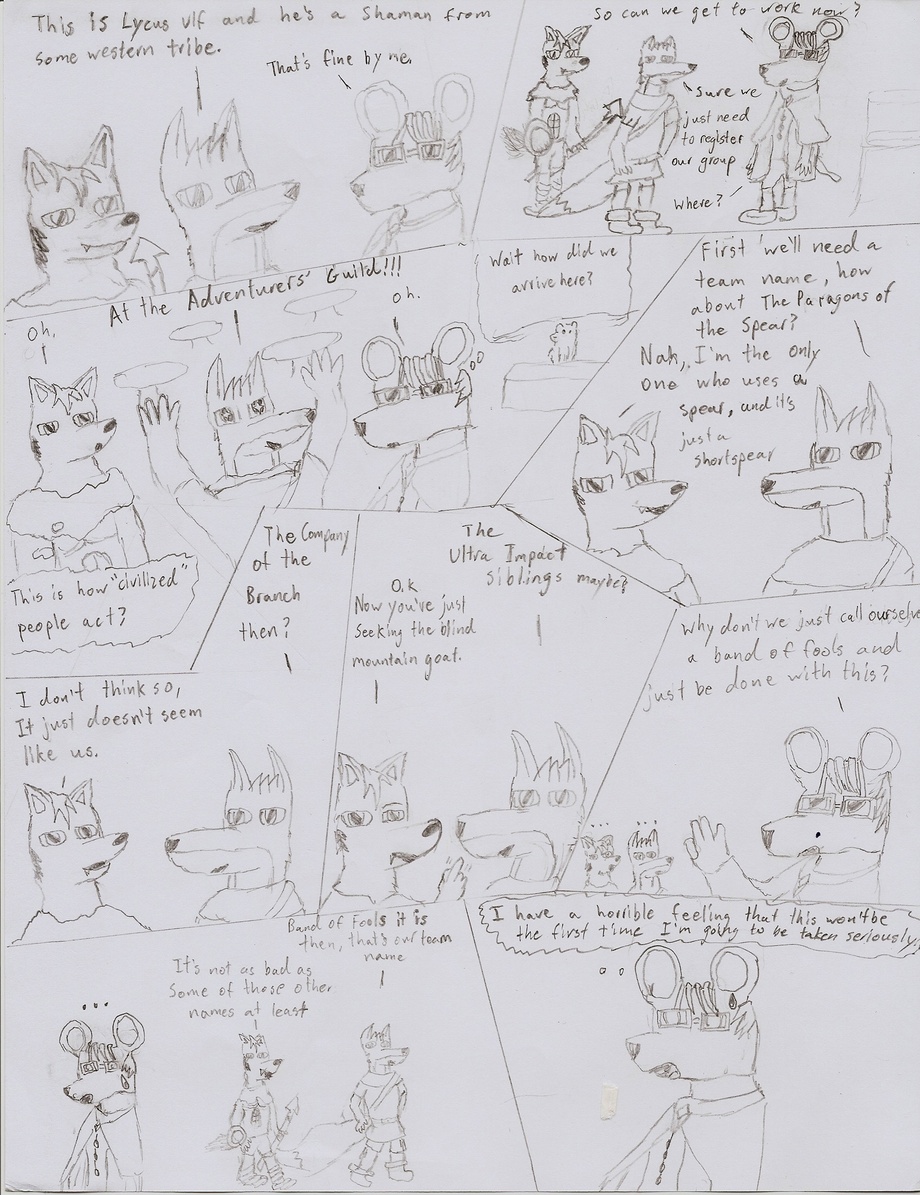 This is Lycus Ulf and he's a Shaman from
some western tribe.
That's fine by me.
So can we get to work now?
Sure we
just need
to register
our group
Where?
At the Adventurers' Guild!!!
Oh.
Oh.
Wait how did we
arrive here?
This is how "civilized"
people act?
First we'll need a
team name, how
about The Paragons of
the Spear?
Nah, I'm the only
one who uses a
spear, and it's
just a
shortspear
The Company
of the
Branch
then?
I don't think so,
It just doesn't seem
like us.
The
Ultra Impact
Siblings maybe?
O.K
Now you've just
seeking the blind
mountain goat.
Why don't we just call ourselve
a band of fools and
just be done with this?
...
...
Band of Fools it is
then, that's our team
name
It's not as bad as
some of those other
names at least
...
I have a horrible feeling that this won't be
the first time I'm going to be taken seriously.